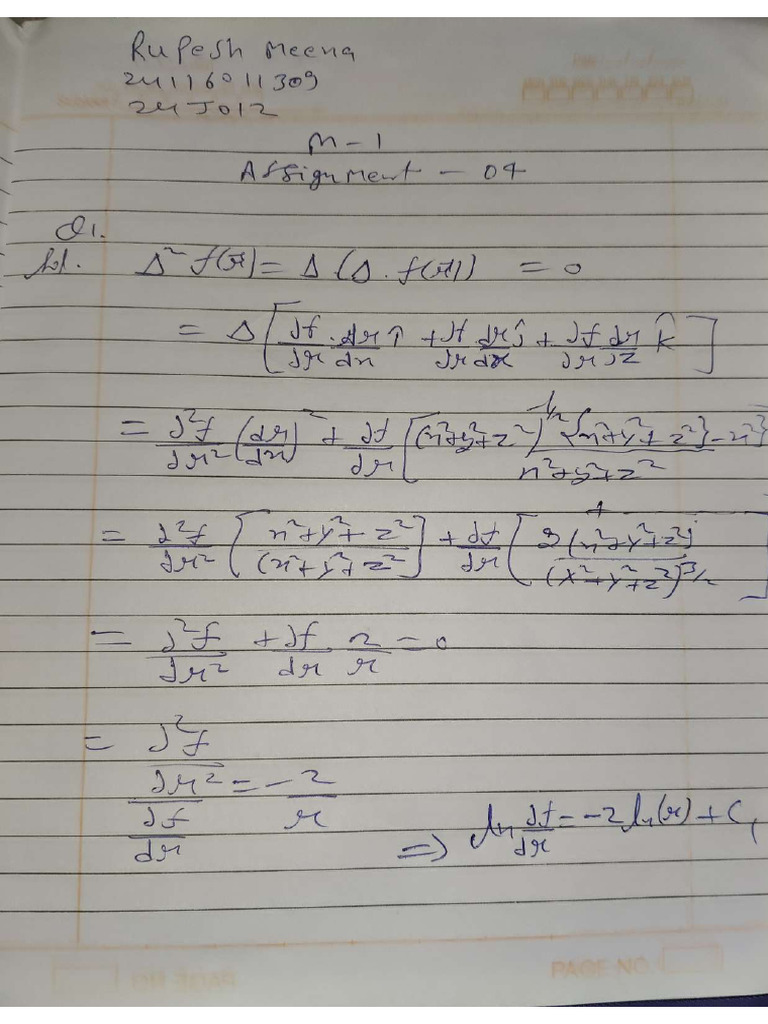 Rupesh Meena
24116011309
24J012
M-1
Assignment - 04
Q1.
Sol. Δ² f(r) = Δ (Δ. f(r)) = 0
= Δ [df/dr . dr/dx î + df/dr dr/dx ĵ + df/dr dr/dz k̂]
= d²f/dr² (dr/dx)² + df/dr [(x²+y²+z²)^1/2 {x²+y²+z²}-x²}/x²+y²+z²
= d²f/dr² [x²+y²+z²/(x²+y²+z²)] + df/dr [2(x²+y²+z²)/(x²+y²+z²)^3/2]
= d²f/dr² + df/dr 2/r = 0
= d²f/dr² / df/dr = -2/r
=> ln df/dr = -2 ln(r) + C1
PAGE NO.